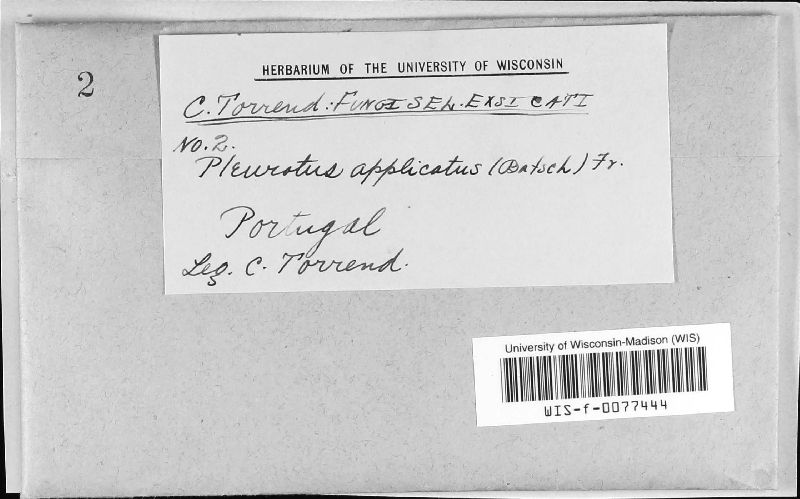 2
HERBARIUM OF THE UNIVERSITY OF WISCONSIN
C. Torrend: FUNGI SEL. EXSICCATI
No. 2.
Pleurotus applicatus (Batsch) Fr.
Portugal
Leg. C. Torrend.
University of Wisconsin-Madison (WIS)
WIS-f-0077444